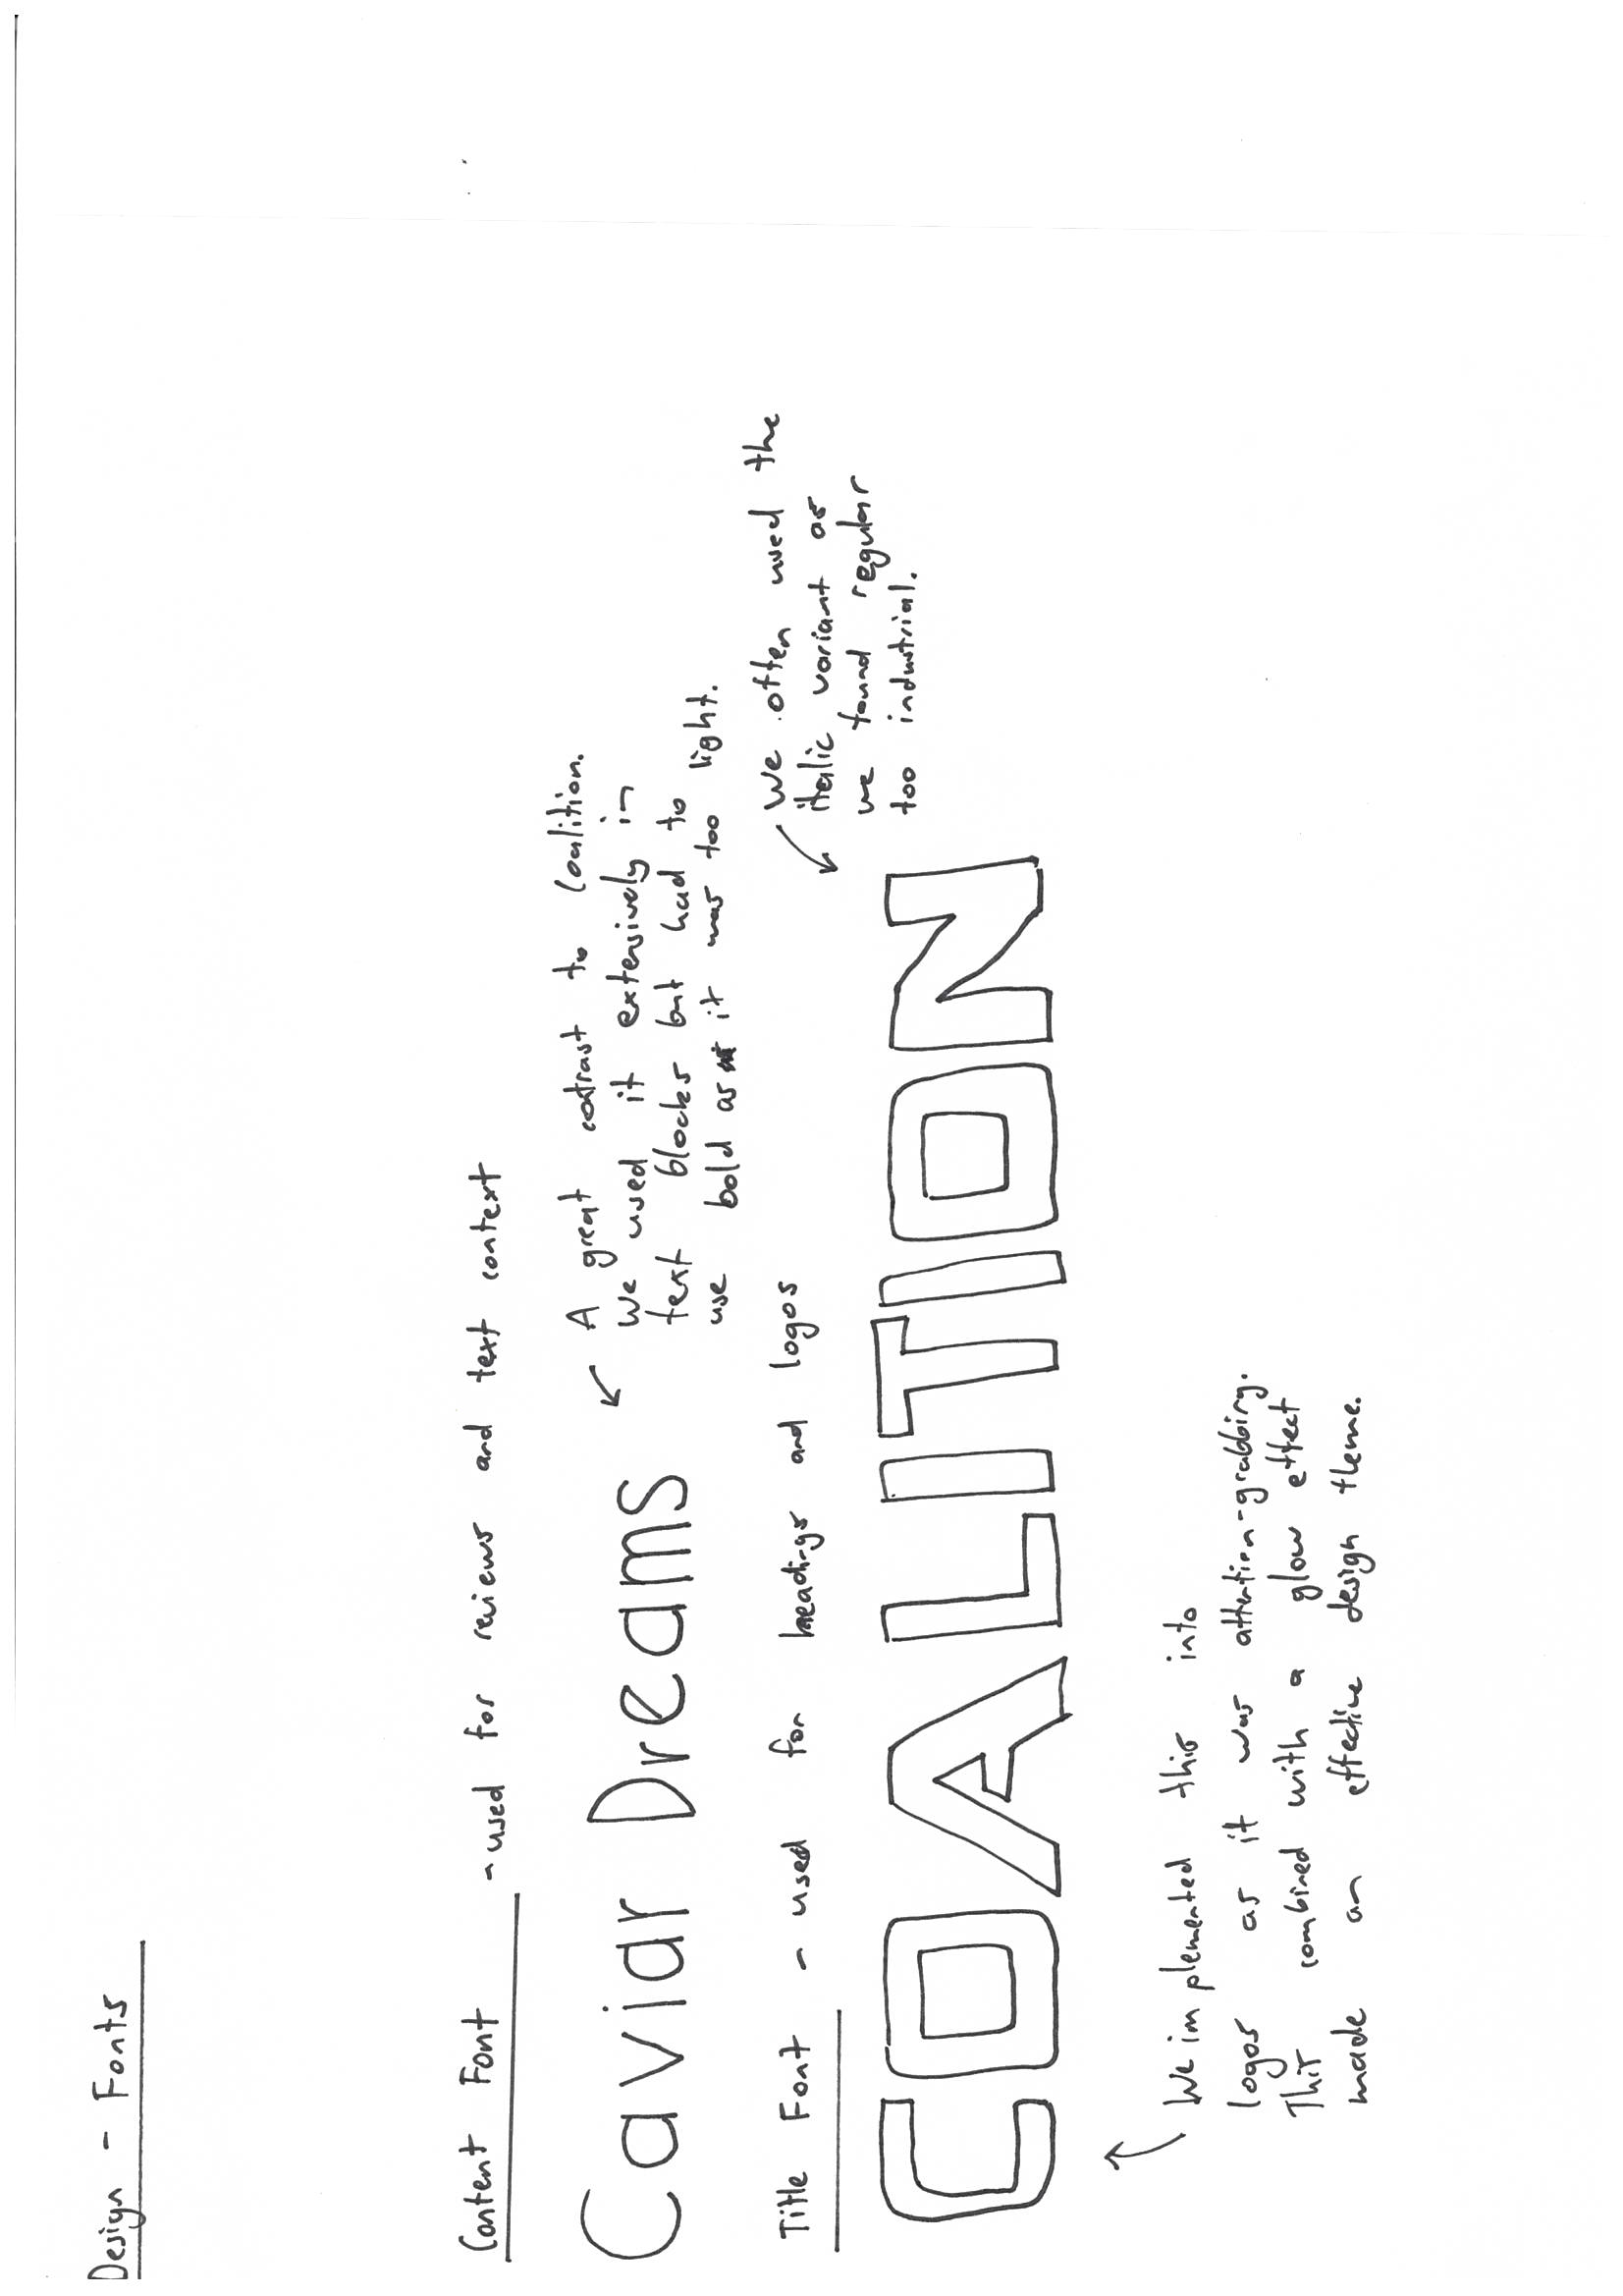 Design - Fonts
Content Font - used for reviews and text context
Caviar Dreams
A great contrast to Coalition.
We used it extensively in
text blocks but had to
use bold as it was too light.
Title Font - used for headings and logos
We often used the
italic variant as
we found regular
too industrial.
COALITION
We implemented this into
logos as it was attention-grabbing.
This combined with a glow effect
made an effective design theme.